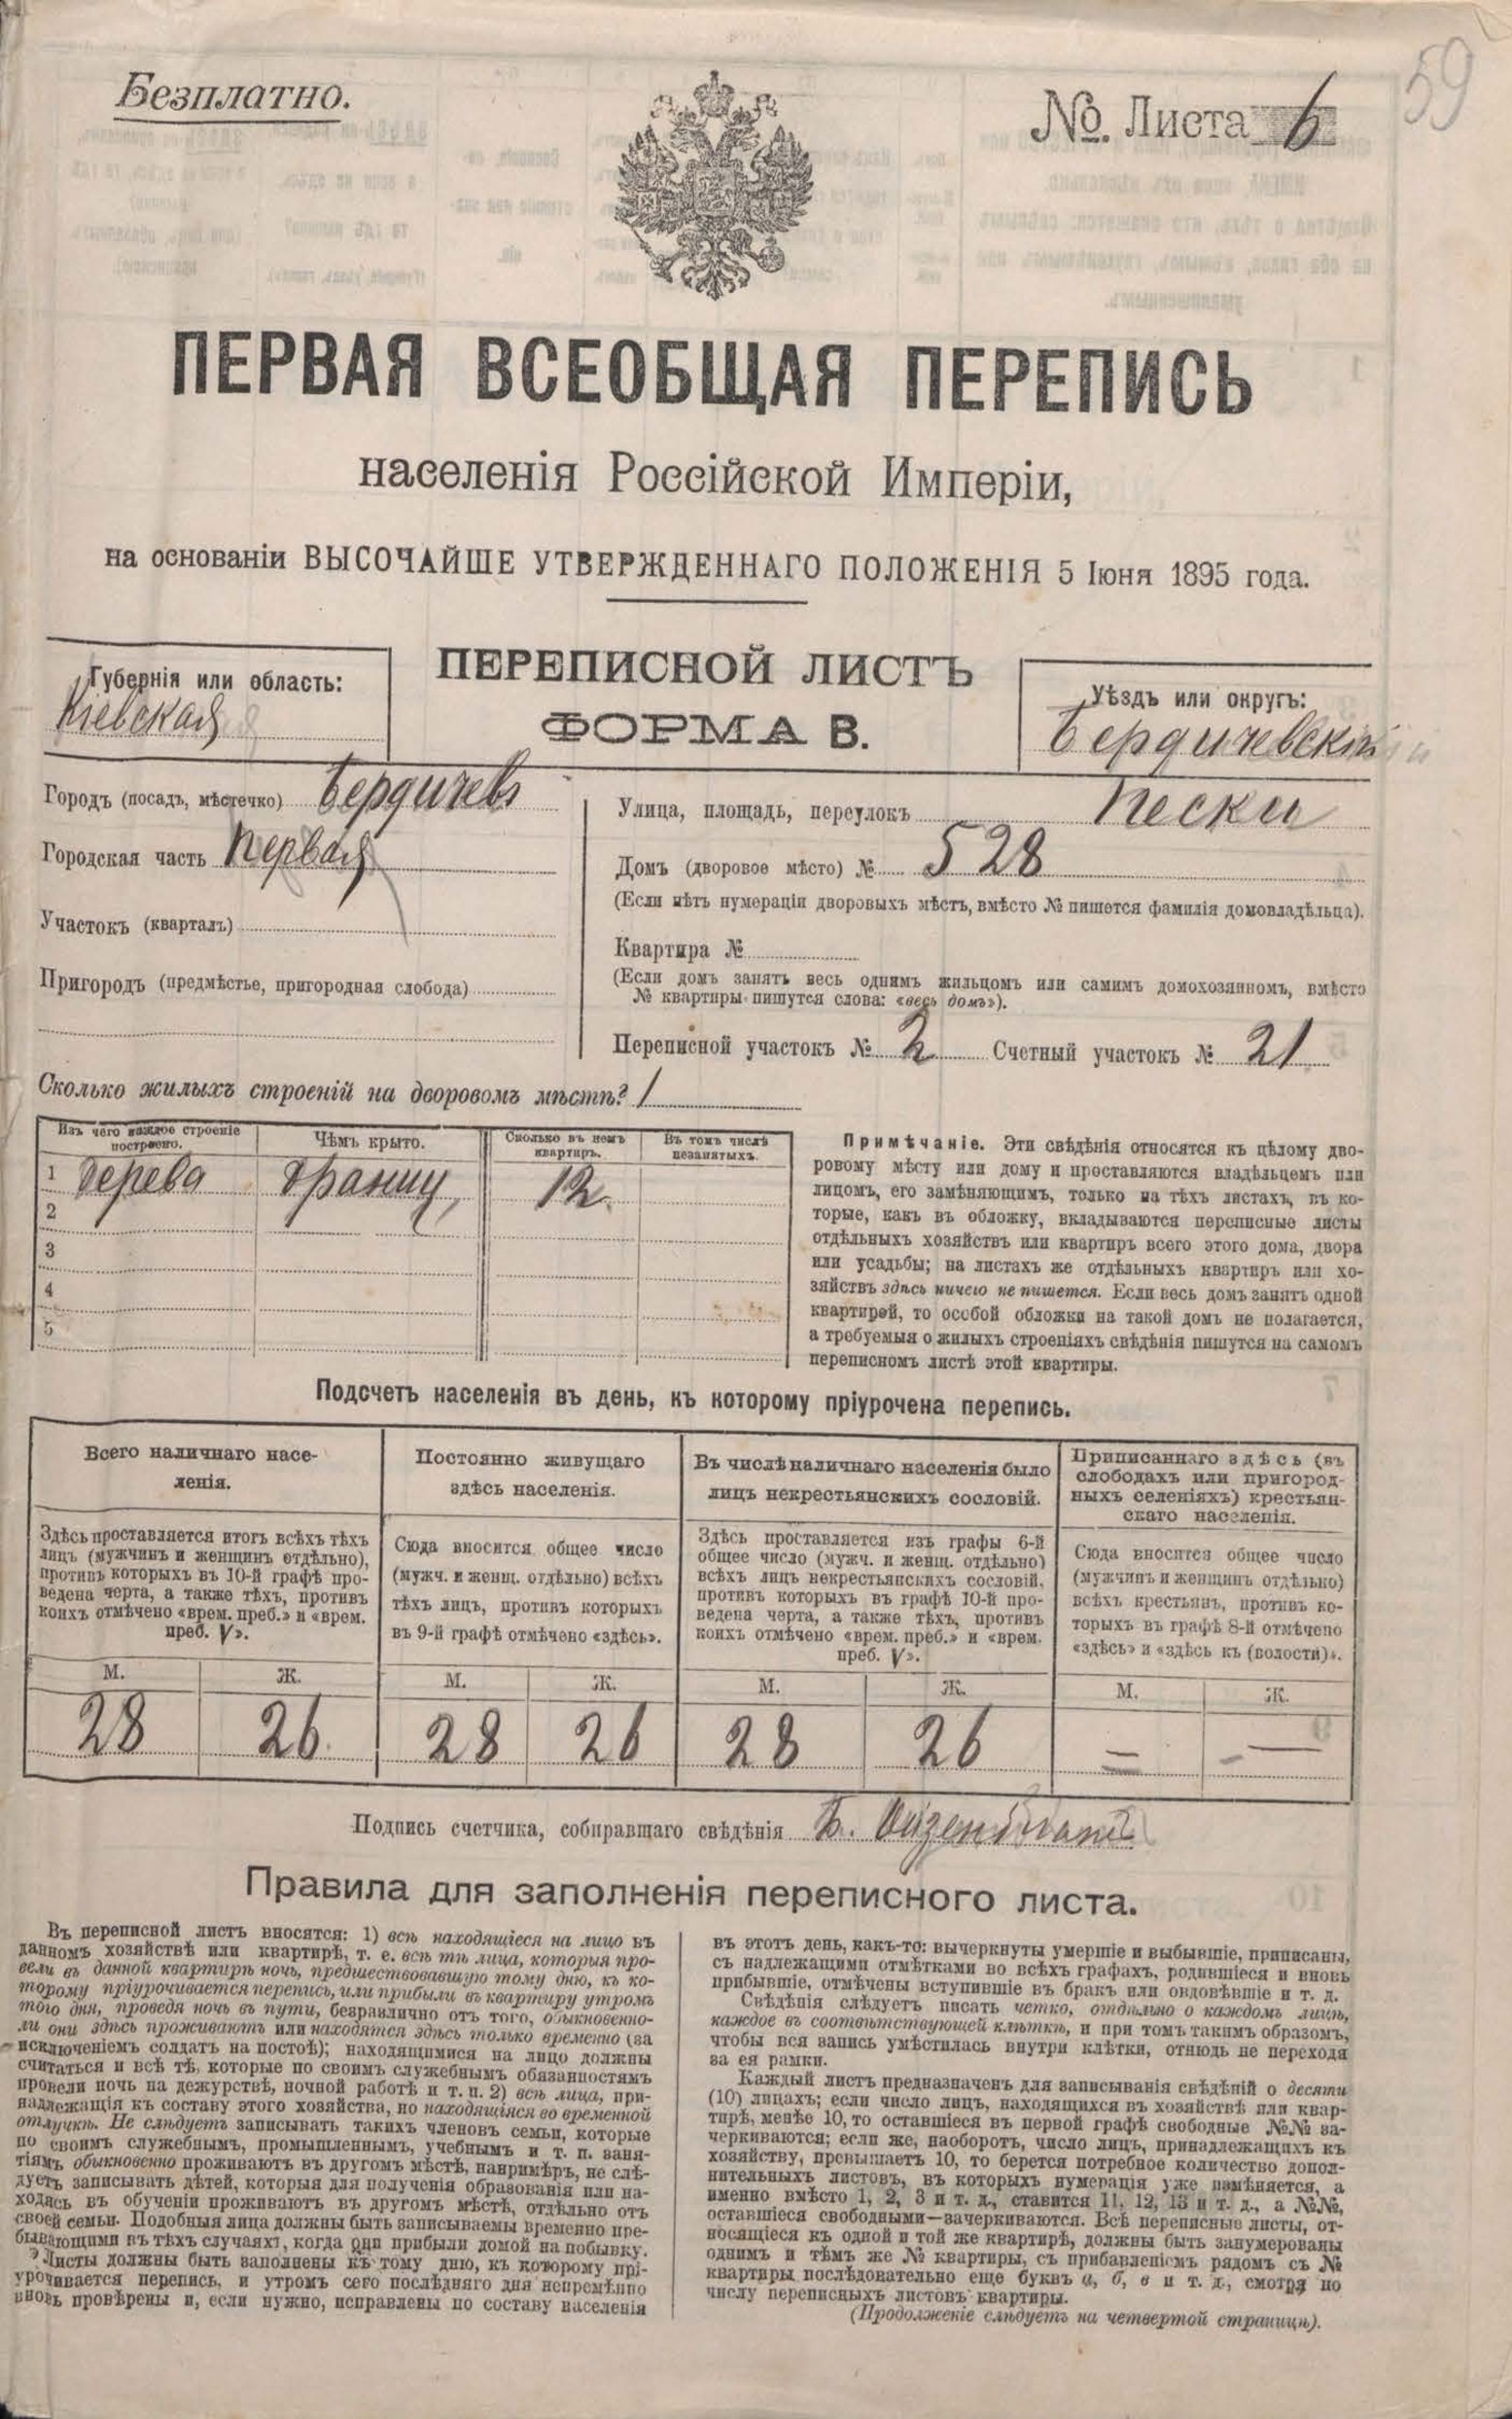 Безплатно.
№ Листа 6
59
ПЕРВАЯ ВСЕОБЩАЯ ПЕРЕПИСЬ
населенія Россійской Имперіи,
на основаніи ВЫСОЧАЙШЕ УТВЕРЖДЕННАГО ПОЛОЖЕНІЯ 5 Іюня 1895 года.
Губернія или область:
Кіевская
ПЕРЕПИСНОЙ ЛИСТЪ
ФОРМА В.
Уѣздъ или округъ:
Бердичевскій
Городъ (посадъ, мѣстечко) Бердичевъ
Городская часть Первая
Участокъ (кварталъ)
Пригородъ (предмѣстье, пригородная слобода)
Улица, площадь, переулокъ Пески
Домъ (дворовое мѣсто) № 528
(Если нѣтъ нумераціи дворовыхъ мѣстъ, вмѣсто № пишется фамилія домовладѣльца).
Квартира №
(Если домъ занятъ весь однимъ жильцомъ или самимъ домохозяиномъ, вмѣсто
№ квартиры пишутся слова: «весь домъ»).
Переписной участокъ № 2 Счетный участокъ № 21
Сколько жилыхъ строеній на дворовомъ мѣстѣ? 1
Изъ чего каждое строеніе построено.
Чѣмъ крыто.
Сколько въ немъ квартиръ.
Въ томъ числѣ незанятыхъ.
1 Дерева 12
2
3
4
5
Примѣчаніе. Эти свѣдѣнія относятся къ цѣлому дво-
ровому мѣсту или дому и проставляются владѣльцемъ или
лицомъ, его замѣняющимъ, только на тѣхъ листахъ, въ ко-
торые, какъ въ обложку, вкладываются переписные листы
отдѣльныхъ хозяйствъ или квартиръ всего этого дома, двора
или усадьбы; на листахъ же отдѣльныхъ квартиръ или хо-
зяйствъ здѣсь ничего не пишется. Если весь домъ занятъ одной
квартирой, то особой обложки на такой домъ не полагается,
а требуемыя о жилыхъ строеніяхъ свѣдѣнія пишутся на самомъ
переписномъ листѣ этой квартиры.
Подсчетъ населенія въ день, къ которому пріурочена перепись.
Всего наличнаго насе-
ленія.
Здѣсь проставляется итогъ всѣхъ тѣхъ
лицъ (мужчинъ и женщинъ отдѣльно),
противъ которыхъ въ 10-й графѣ про-
ведена черта, а также тѣхъ, противъ
коихъ отмѣчено «врем. преб.» и «врем.
преб. V».
М. Ж.
28 26
Постоянно живущаго
здѣсь населенія.
Сюда вносится общее число
(мужч. и женщ. отдѣльно) всѣхъ
тѣхъ лицъ, противъ которыхъ
въ 9-й графѣ отмѣчено «здѣсь».
М. Ж.
28 26
Въ числѣ наличнаго населенія было
лицъ некрестьянскихъ сословій.
Здѣсь проставляется изъ графы 6-й
общее число (мужч. и женщ. отдѣльно)
всѣхъ лицъ некрестьянскихъ сословій,
противъ которыхъ въ графѣ 10-й про-
ведена черта, а также тѣхъ, противъ
коихъ отмѣчено «врем. преб.» и «врем.
преб. V».
М. Ж.
28 26
Приписаннаго здѣсь (въ
слободахъ или пригород-
ныхъ селеніяхъ) крестьян-
скаго населенія.
Сюда вносится общее число
(мужчинъ и женщинъ отдѣльно)
всѣхъ крестьянъ, противъ ко-
торыхъ въ графѣ 8-й отмѣчено
«здѣсь» и «здѣсь къ (волости)».
М. Ж.
— —
Подпись счетчика, собиравшаго свѣдѣнія
Правила для заполненія переписного листа.
Въ переписной листъ вносятся: 1) всѣ находящіеся на лицо въ
данномъ хозяйствѣ или квартирѣ, т. е. всѣ тѣ лица, которыя про-
вели въ данной квартирѣ ночь, предшествовавшую тому дню, къ ко-
торому пріурочивается перепись, или прибыли въ квартиру утромъ
того дня, проведя ночь въ пути, безразлично отъ того, обыкновенно-
ли они здѣсь проживаютъ или находятся здѣсь только временно (за
исключеніемъ солдатъ на постоѣ); находящимися на лицо должны
считаться и всѣ тѣ, которые по своимъ служебнымъ обязанностямъ
провели ночь на дежурствѣ, ночной работѣ и т. п. 2) всѣ лица, при-
надлежащія къ составу этого хозяйства, но находящіяся во временной
отлучкѣ. Не слѣдуетъ записывать такихъ членовъ семьи, которые
по своимъ служебнымъ, промышленнымъ, учебнымъ и т. п. заня-
тіямъ обыкновенно проживаютъ въ другомъ мѣстѣ, напримѣръ, не слѣ-
дуетъ записывать дѣтей, которыя для полученія образованія или на-
ходясь въ обученіи проживаютъ въ другомъ мѣстѣ, отдѣльно отъ
своей семьи. Подобныя лица должны быть записываемы временно пре-
бывающими въ тѣхъ случаяхъ, когда они прибыли домой на побывку.
Листы должны быть заполнены къ тому дню, къ которому прі-
урочивается перепись, и утромъ сего послѣдняго дня непремѣнно
вновь провѣрены и, если нужно, исправлены по составу населенія
въ этотъ день, какъ-то: вычеркнуты умершіе и выбывшіе, приписаны,
съ надлежащими отмѣтками во всѣхъ графахъ, родившіеся и вновь
прибывшіе, отмѣчены вступившіе въ бракъ или овдовѣвшіе и т. д.
Свѣдѣнія слѣдуетъ писать четко, отдѣльно о каждомъ лицѣ,
каждое въ соотвѣтствующей клѣткѣ, и при томъ такимъ образомъ,
чтобы вся запись умѣстилась внутри клѣтки, отнюдь не переходя
за ея рамки.
Каждый листъ предназначенъ для записыванія свѣдѣній о десяти
(10) лицахъ; если число лицъ, находящихся въ хозяйствѣ или квар-
тирѣ, менѣе 10, то оставшіеся въ первой графѣ свободные №№ за-
черкиваются; если же, наоборотъ, число лицъ, принадлежащихъ къ
хозяйству, превышаетъ 10, то берется потребное количество допол-
нительныхъ листовъ, въ которыхъ нумерація уже измѣняется, а
именно вмѣсто 1, 2, 3 и т. д., ставится 11, 12, 13 и т. д., а №№,
оставшіеся свободными—зачеркиваются. Всѣ переписные листы, от-
носящіеся къ одной и той же квартирѣ, должны быть занумерованы
однимъ и тѣмъ же № квартиры, съ прибавленіемъ рядомъ съ №
квартиры послѣдовательно еще буквъ а, б, в и т. д., смотря по
числу переписныхъ листовъ квартиры.
(Продолженіе слѣдуетъ на четвертой страницѣ).